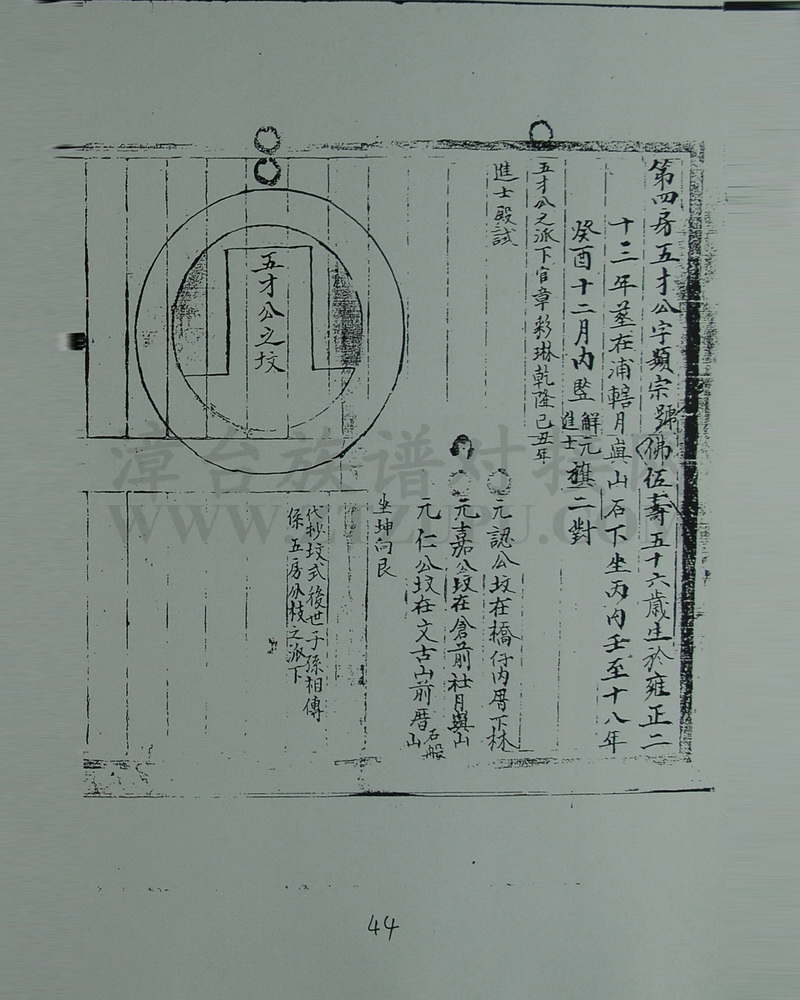 第四房五才公字顯宗號佛伍壽五十六歲生於雍正二
十三年塟在浦轄月眞山石下坐丙向壬至十八年
癸酉十二月內監
解元
進士
旗二對
五才公之派下官章彩琳乾隆己丑年
進士殿試
元認公坟在橋仔內厝下林
元嘉公坟在倉前社月眞山
元仁公坟在文古山前厝石般山
坐坤向艮
五才公之坟
代抄坟式後世子孫相傳
係五房分枝之派下
www.
44